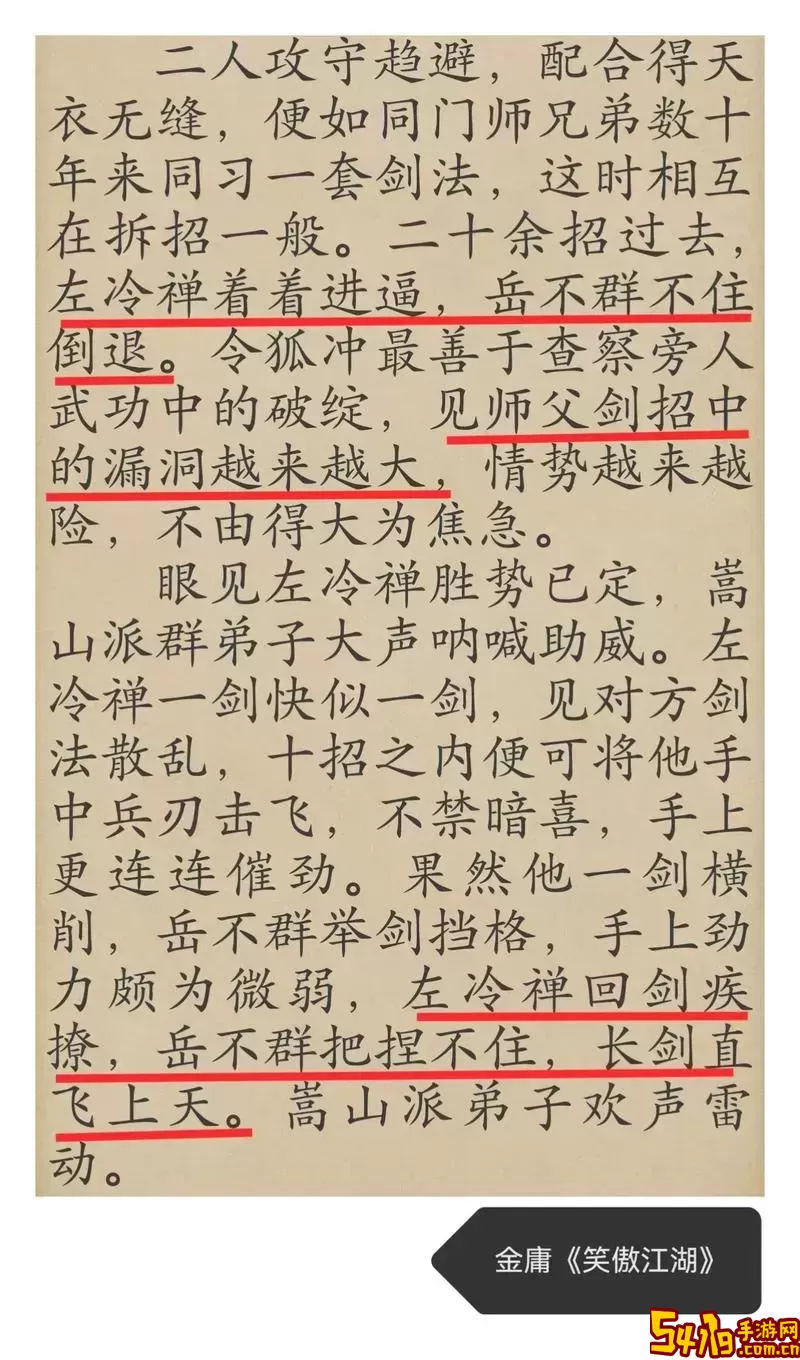 二人攻守趋避，配合得天
衣无缝，便如同门师兄弟数十
年来同习一套剑法，这时相互
在拆招一般。二十余招过去，
左冷禅着着进逼，岳不群不住
倒退。令狐冲最善于查察旁人
武功中的破绽，见师父剑招中
的漏洞越来越大，情势越来越
险，不由得大为焦急。
眼见左冷禅胜势已定，嵩
山派群弟子大声呐喊助威。左
冷禅一剑快似一剑，见对方剑
法散乱，十招之内便可将他手
中兵刃击飞，不禁暗喜，手上
更连连催劲。果然他一剑横
削，岳不群举剑挡格，手上劲
力颇为微弱，左冷禅回剑疾
撩，岳不群把捏不住，长剑直
飞上天。嵩山派弟子欢声雷
动。
金庸《笑傲江湖》
5419手游网
.com.cn